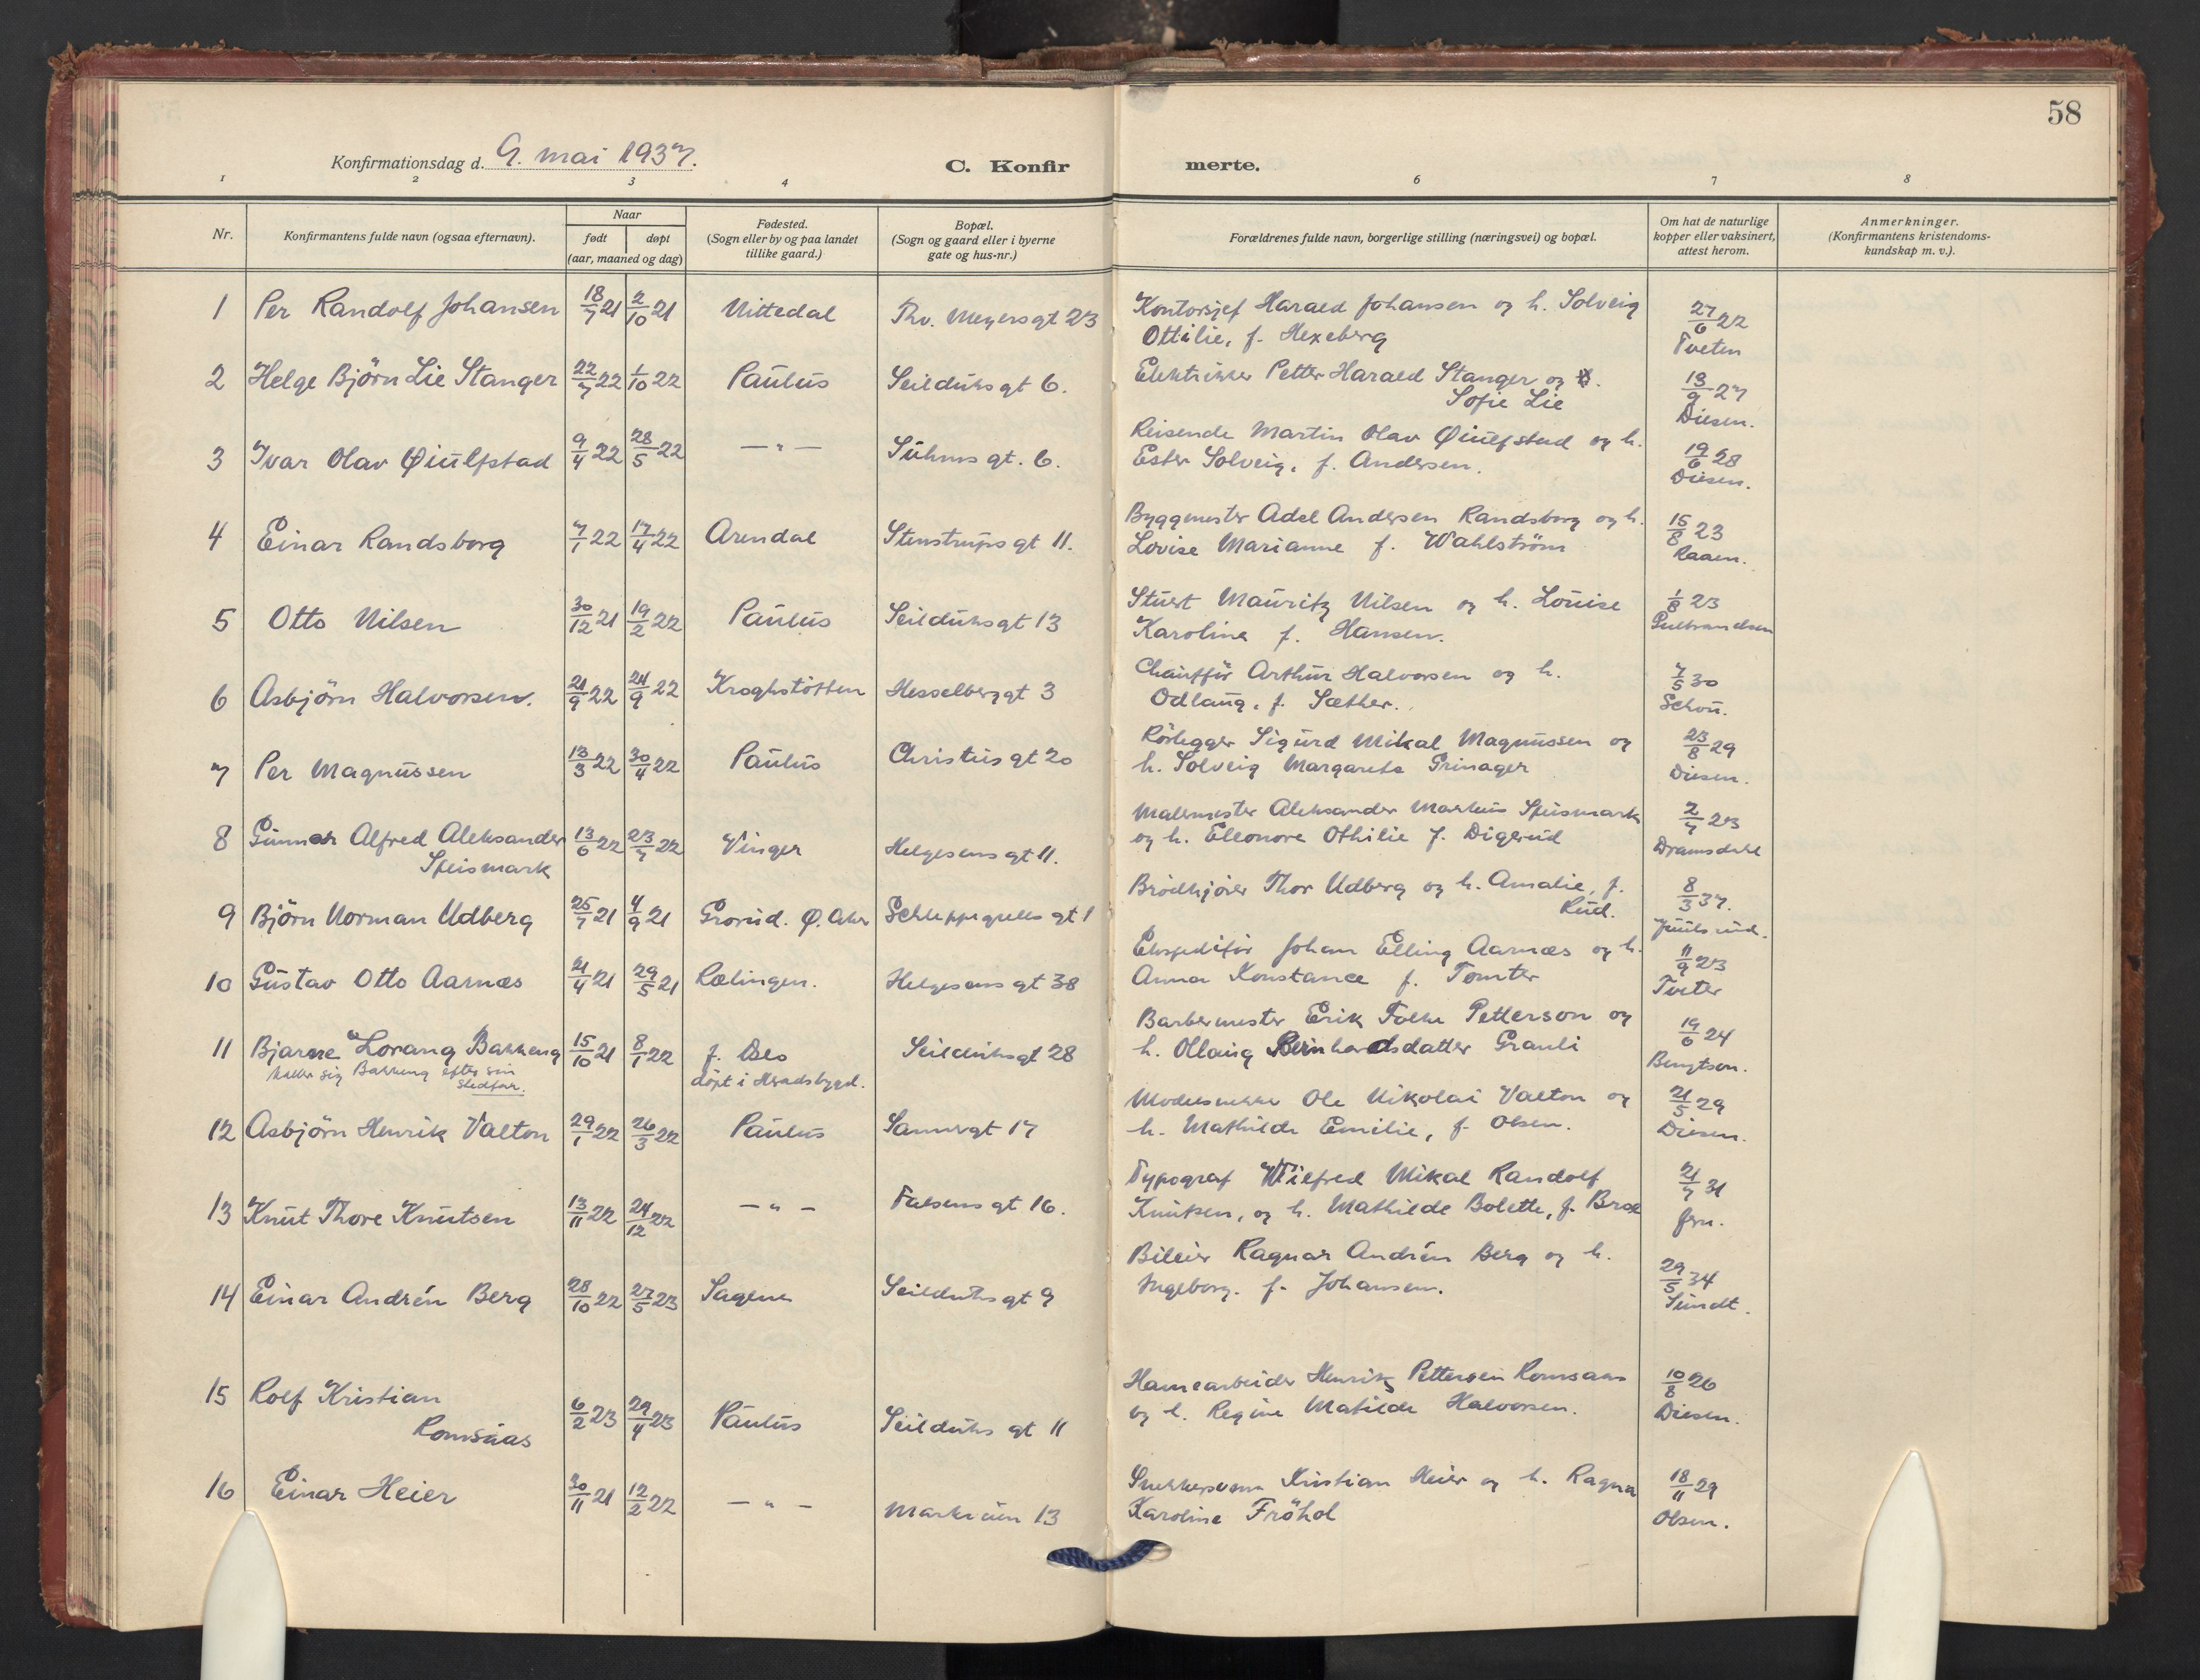 58
Konfirmationsdag d. 9. mai 1937. C. Konfirmerte.
1 2 3 4 6 7 8
Nr. Konfirmantens fulde navn (ogsaa efternavn). Naar født døpt (aar, maaned og dag) Fødested. (Sogn eller by og paa landet tillike gaard.) Bopæl. (Sogn og gaard eller i byerne gate og hus-nr.) Forældrenes fulde navn, borgerlige stilling (næringsvei) og bopæl. Om hat de naturlige kopper eller vaksinert, attest herom. Anmerkninger. (Konfirmantens kristendoms-kundskap m. v.).
1 Per Randolf Johansen 18/7 21 2/10 21 Nittedal Thv. Meyersgt 23 Kontorsjef Harald Johansen og h. Solveig 27/6 22
Ottilie, f. Hexeberg Tveten
2 Helge Björn Lie Stanger 22/7 22 1/10 22 Paulus Seilduksgt 6. Elektriker Petter Harald Stanger og 13/9 27
Sofie Lie Diesen.
3 Ivar Olav Øiulfstad 9/4 22 28/5 22 — " — Suhms gt. 6. Reisende Martin Olav Øiulfstad og h. 19/6 28
Ester Solveig, f. Andersen. Diesen.
4 Einar Randsborg 7/1 22 17/4 22 Arendal Stenstrups gt 11. Byggmester Adel Andersen Randsborg og h. 15/8 23
Lovise Marianne f. Wahlström Raaen.
5 Otto Nilsen 30/12 21 19/2 22 Paulus Seilduksgt 13 Stuert Mauritz Nilsen og h. Louise 1/8 23
Karoline f. Hansen. Gulbrandsen
6 Asbjörn Halvorsen. 21/9 22 24/9 22 Kroghstötten Hesselberggt 3 Chaufför Arthur Halvorsen og h. 7/5 30
Odlaug, f. Sæther. Schou.
7 Per Magnussen 13/3 22 30/4 22 Paulus Christies gt 20 Rörlegger Sigurd Mikal Magnussen og 23/8 29
h. Solveig Margarete Grinager Diesen.
8 Gunnar Alfred Aleksander 13/6 22 23/7 22 Vinger Helgesens gt 11. Malermester Aleksander Markus Speismark 2/7 23
Speismark og h. Eleonore Othilie f. Digerud Dramsdahl
9 Björn Norman Udberg 25/7 21 4/9 21 Grorud. Ø. Aker Schleppegrells gt 1 Brödkjörer Thor Udberg og h. Amalie, f. 8/3 37.
Rud. Juulsrud.
10 Gustav Otto Aarnæs 21/4 21 29/5 21 Rælingen. Helgesens gt 38 Ekspeditör Johan Elling Aarnæs og h. 11/9 23
Anna Konstance f. Tomter Tveter
11 Bjarne Lorang Bakkeng 15/10 21 8/1 22 f. Oslo Seilduksgt 28 Barbermester Erik Folke Petterson og 19/6 24
kaller sig Bakkeng efter sin stedfar. döpt i Hradsbygd. h. Ollaug Bernhardsdatter Grauli Bengtson.
12 Asbjörn Henrik Valton 29/1 22 26/3 22 Paulus Sannergt 17 Modelsnekker Ole Nikolai Valton og 21/5 29
h. Mathilde Emilie, f. Olsen. Diesen.
13 Knut Thore Knutsen 13/11 22 24/12 22 — " — Falsens gt 16. Typograf Wilfred Mikal Randolf 21/7 31
Knutsen, og h. Mathilde Bolette, f. Brox
14 Einar Andrén Berg 28/10 22 27/5 23 Sagene Seilduksgt 9 Bileier Ragnar Andrén Berg og h. 29/5 34
Ingeborg. f. Johansen. Sundt.
15 Rolf Kristian Romsaas 6/2 23 29/4 23 Paulus Seilduks gt 11 Havnearbeider Henrik Pettersen Romsaas 10/8 26
og h. Regine Matilde Halvorsen. Diesen.
16 Einar Heier 30/11 21 12/2 22 — " — Markveien 13 Snekkersvenn Kristian Heier og h. Ragna 18/11 29
Karoline Fröhol Olsen.